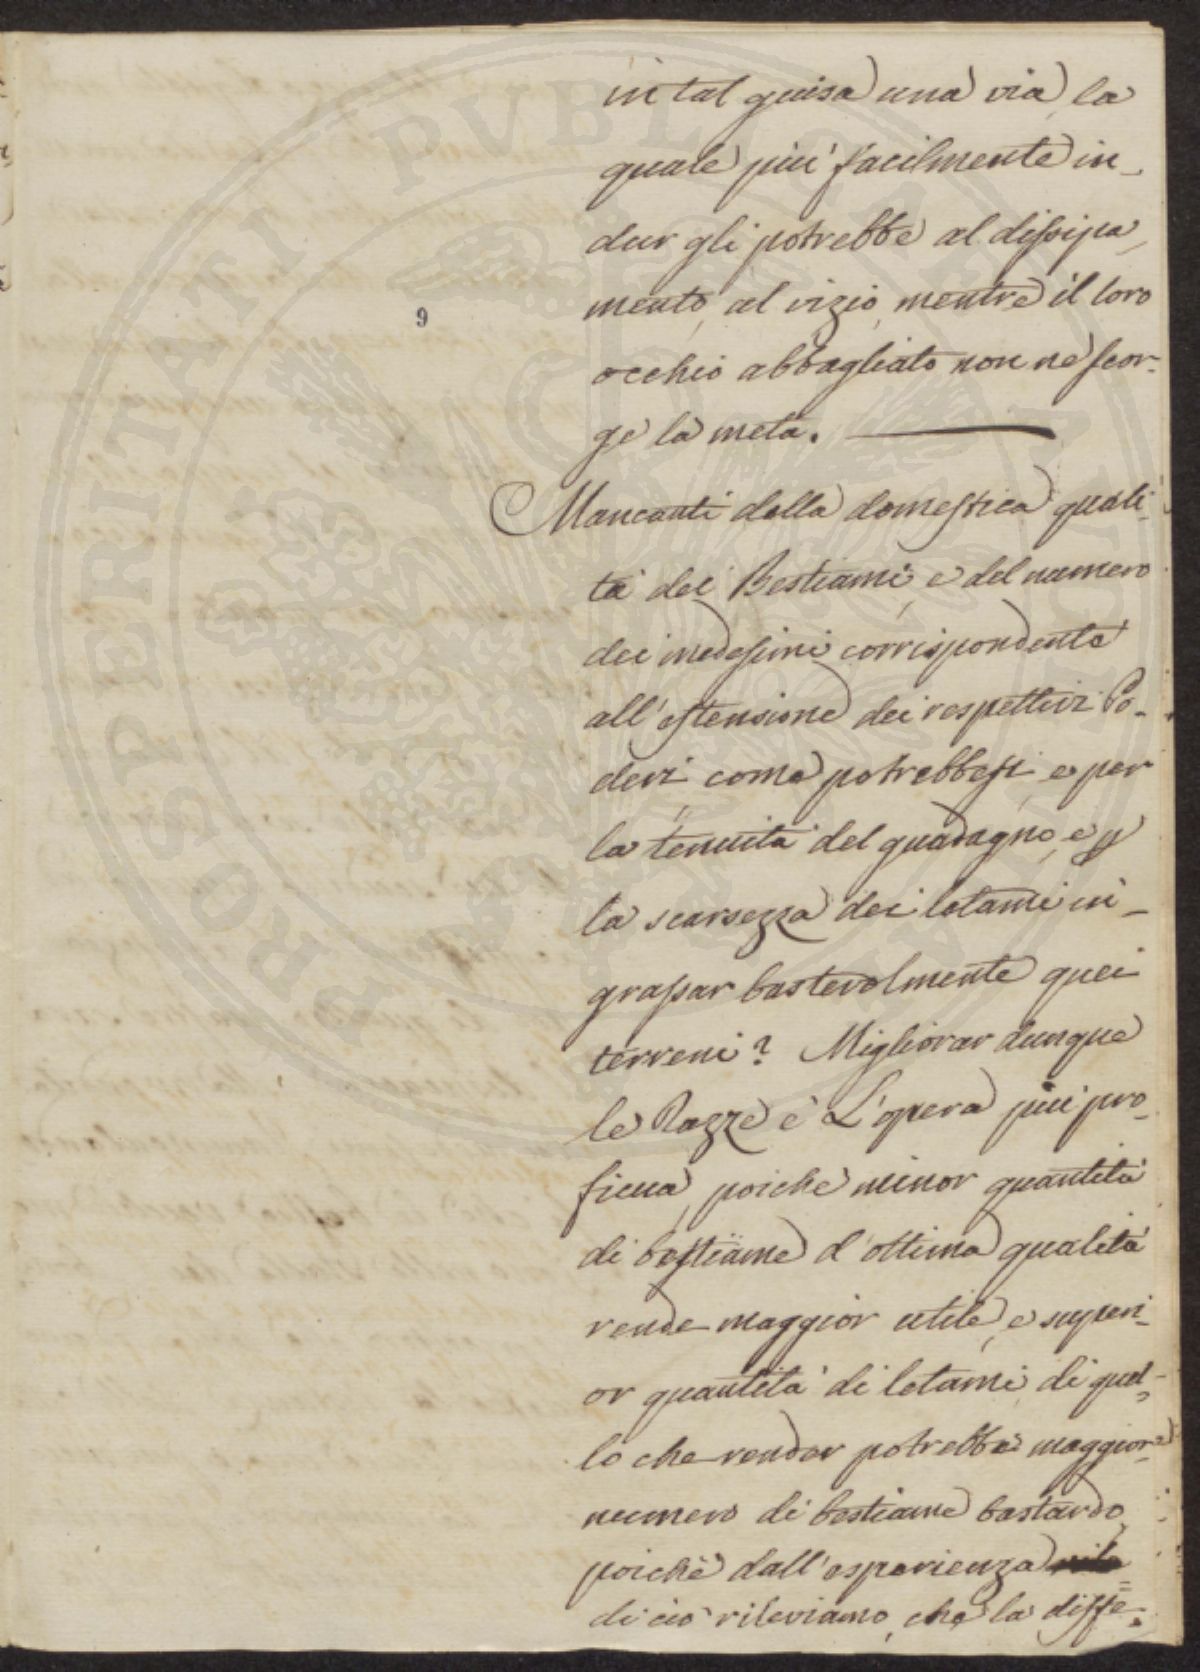 in tal guisa una via, la
quale più facilmente in-
dur gli potrebbe al dissipa-
mento, al vizio, mentre il loro
9
occhio abbagliato non ne scor-
ge la meta.
Mancanti della domestica quali-
tà dei Bestiami, e del numero
dei medesimi corrispondente
all'estensione dei respettivi Po-
deri come potrebbesi, e per
la tenuità del guadagno, e p
la scarsezza dei letami in-
grassar bastevolmente quei
terreni? Migliorar dunque
le Razze è L'opera più pro-
ficua, poichè minor quantità
di bestiame d'ottima qualità
rende maggior utile, e superi-
or quantità di letami, di quel-
lo che render potrebbe maggiore
numero di bestiame bastardo,
poichè dall'esperienza
di ciò rileviamo, che la diffe-
PROSPERITATI PVBLICAE